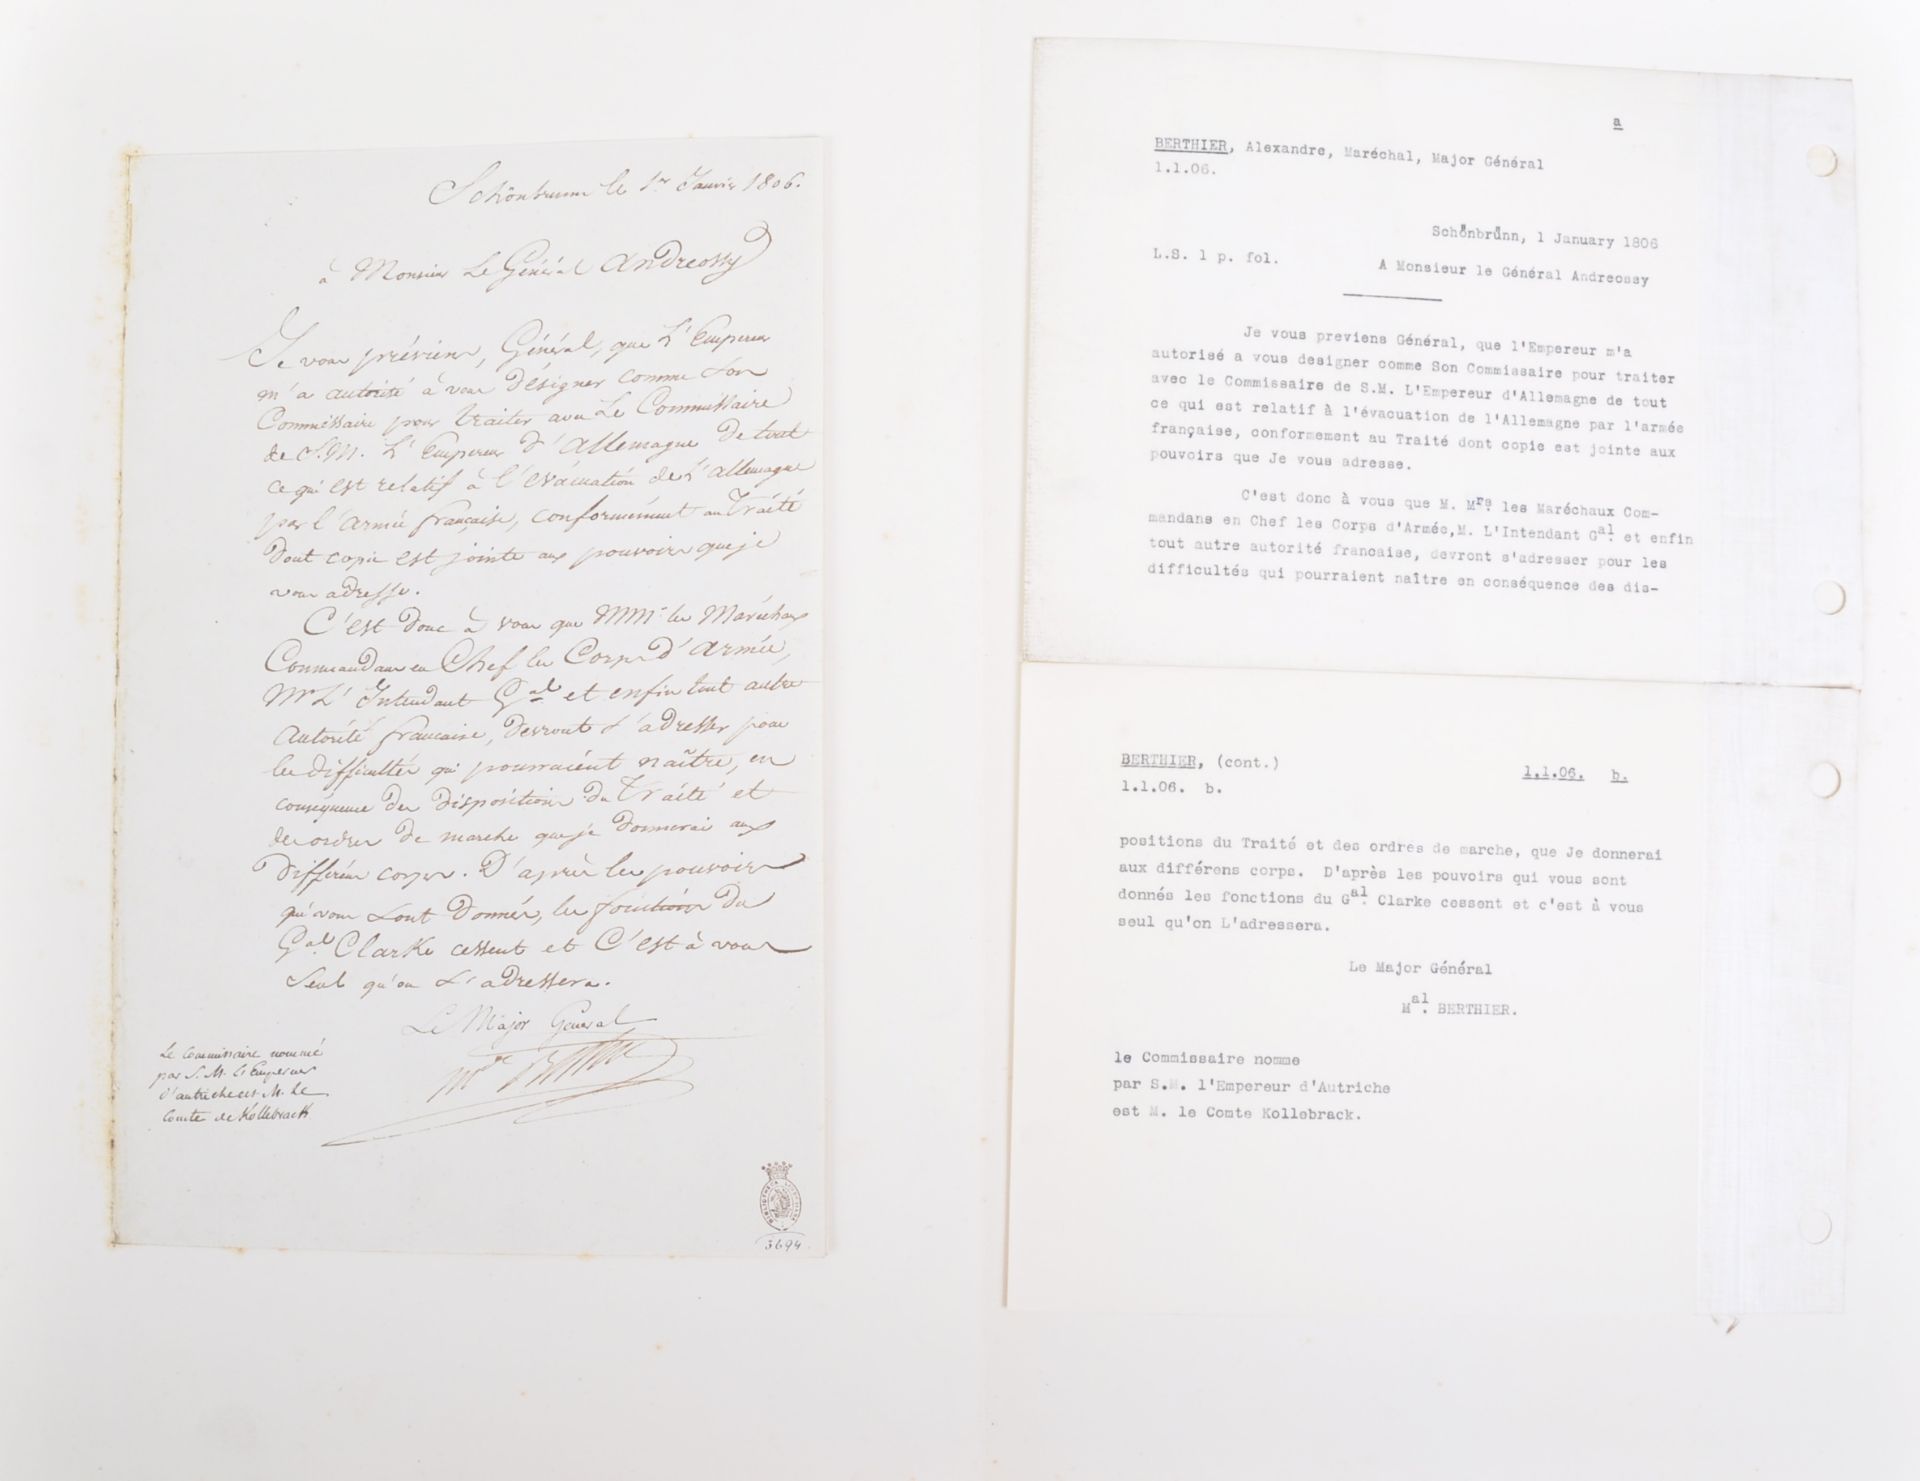 Schönbrunn le 1er Janvier 1806.
à Monsieur Le Général Andreossy
Je vous préviens, Général, que L'Empereur
m'a autorisé à vous désigner comme Son
Commissaire pour traiter avec Le Commissaire
de S.M. L'Empereur d'Allemagne de tout
ce qui est relatif à l'évacuation de L'Allemagne
par l'armée française, conformément au Traité
dont copie est jointe aux pouvoirs que je
vous adresse.
C'est donc à vous que MM. les Maréchaux
Commandans en Chef les Corps d'Armée,
Mr L'Intendant Gal et enfin tout autre
autorité francaise, devront s'adresser pour
les difficultés qui pourraient naître, en
conséquence des dispositions du Traité et
des ordres de marche que je donnerai aux
différens corps. D'après les pouvoirs
qui vous sont donnés, les fonctions du
Gal Clarke cessent et C'est à vous
Seul qu'on L'adressera.
Le Major General
Mal Berthier
Le Commissaire nommé
par S. M. L'Empereur
d'autriche est M. Le
Comte de Kollebrack
BIBLIOTHECA
3694
a
BERTHIER, Alexandre, Maréchal, Major Général
1.1.06.
Schönbrünn, 1 January 1806
L.S. 1 p. fol.
A Monsieur le Général Andreossy
Je vous previens Général, que l'Empereur m'a
autorisé a vous designer comme Son Commissaire pour traiter
avec le Commissaire de S.M. L'Empereur d'Allemagne de tout
ce qui est relatif à l'évacuation de l'Allemagne par l'armée
française, conformement au Traité dont copie est jointe aux
pouvoirs que Je vous adresse.
C'est donc à vous que M. Mrs. les Maréchaux Com-
mandans en Chef les Corps d'Armée,M. L'Intendant Gal. et enfin
tout autre autorité francaise, devront s'adresser pour les
difficultés qui pourraient naître en conséquence des dis-
BERTHIER, (cont.)
1.1.06. b.
1.1.06. b.
positions du Traité et des ordres de marche, que Je donnerai
aux différens corps. D'après les pouvoirs qui vous sont
donnés les fonctions du Gal. Clarke cessent et c'est à vous
seul qu'on L'adressera.
Le Major Général
Mal. BERTHIER.
le Commissaire nomme
par S.M. l'Empereur d'Autriche
est M. le Comte Kollebrack.